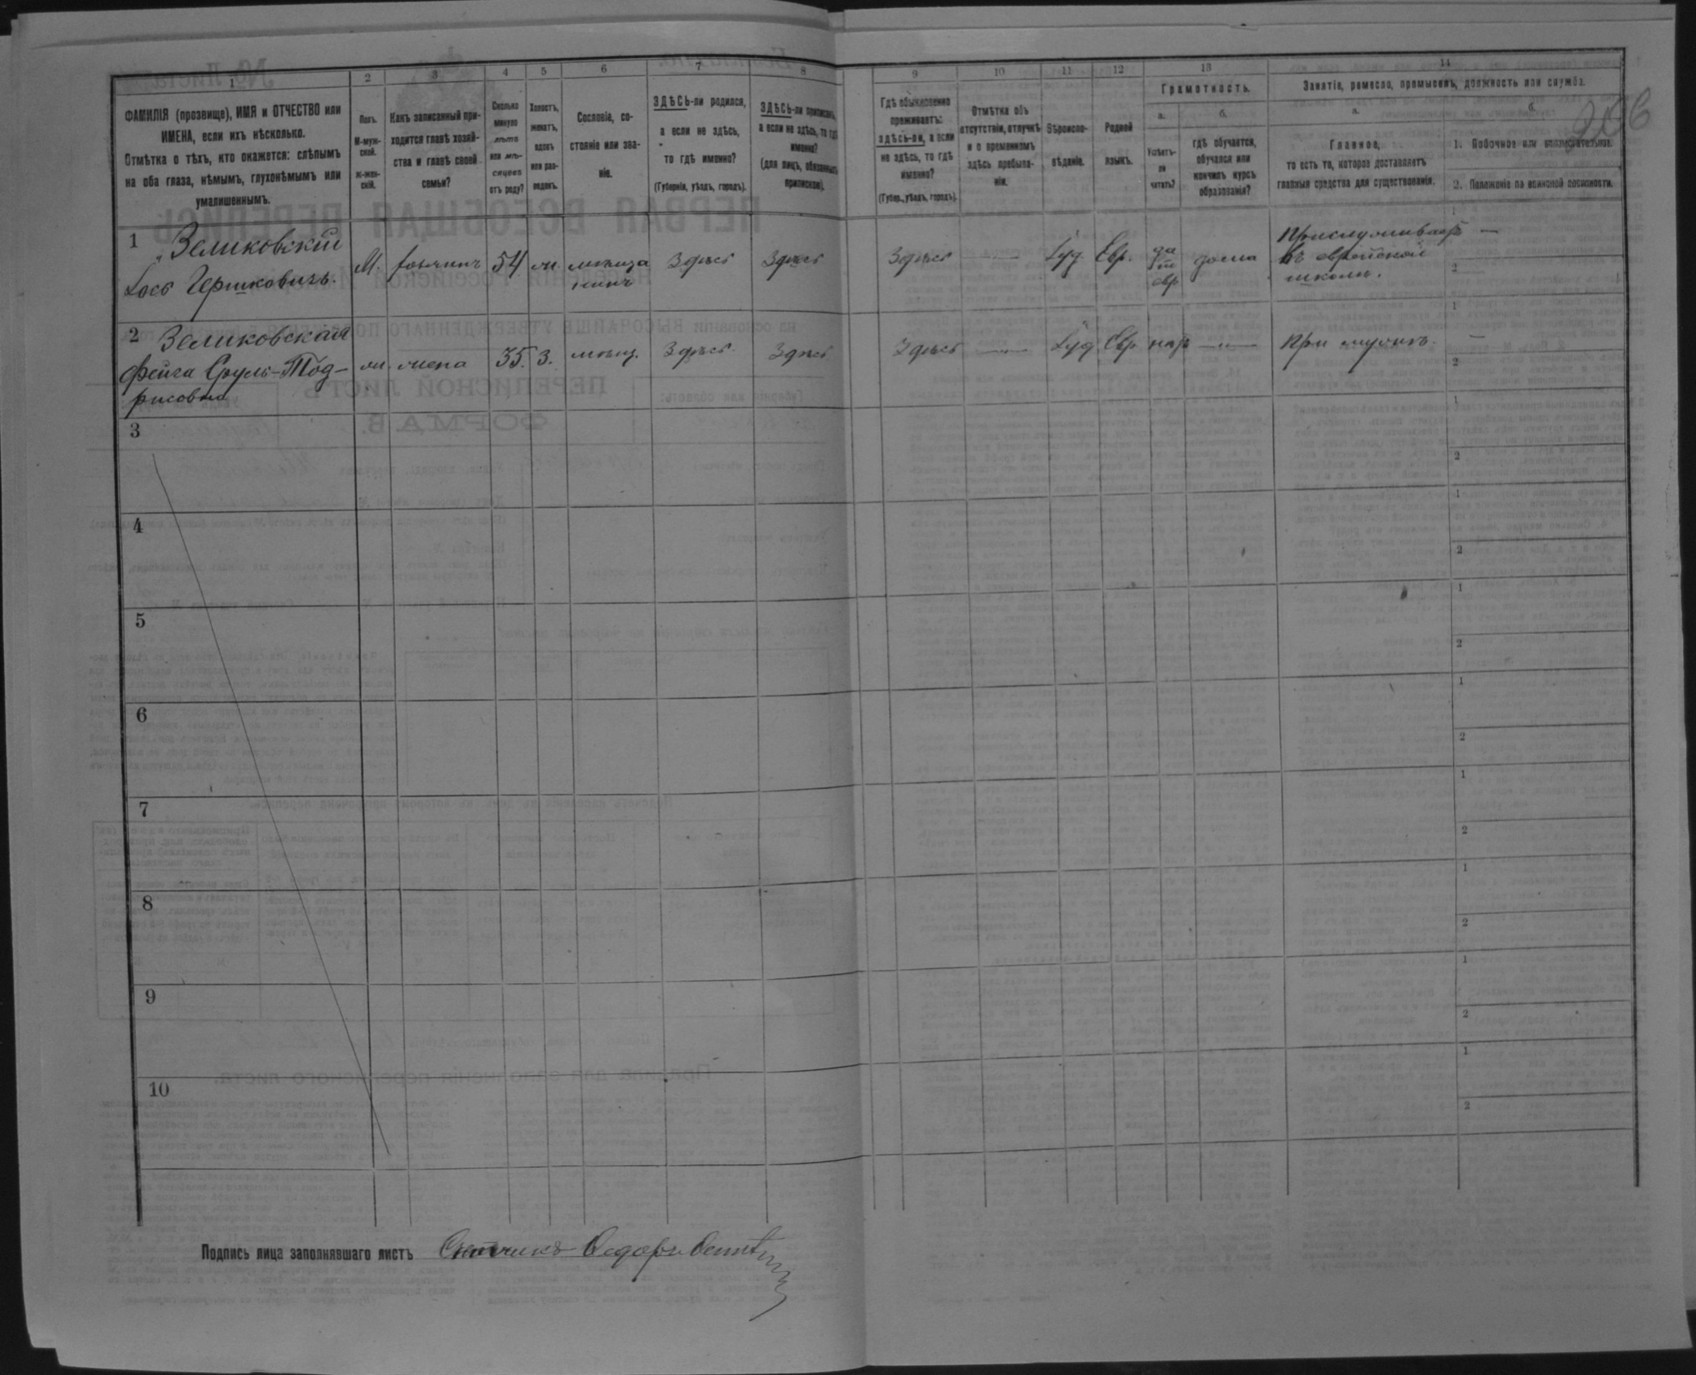 1
2
3
4
5
6
7
8
ФАМИЛІЯ (прозвище), ИМЯ и ОТЧЕСТВО или
ИМЕНА, если ихъ нѣсколько.
Отмѣтка о тѣхъ, кто окажется: слѣпымъ
на оба глаза, нѣмымъ, глухонѣмымъ или
умалишеннымъ.
Полъ.
М-муж-
ской.
Ж-жен-
скій.
Какъ записанный при-
ходится главѣ хозяй-
ства и главѣ своей
семьи?
Сколько
минуло
лѣтъ
или мѣ-
сяцевъ
отъ роду?
Холостъ,
женатъ,
вдовъ
или раз-
веденъ.
Сословіе, со-
стояніе или зва-
ніе.
ЗДѢСЬ-ли родился,
а если не здѣсь,
то гдѣ именно?
(Губернія, уѣздъ, городъ).
ЗДѢСЬ-ли приписанъ,
а если не здѣсь, то гдѣ
именно?
(для лицъ, обязанныхъ
припискою).
9
10
11
12
13
14
Гдѣ обыкновенно
проживаетъ:
здѣсь-ли, а если
не здѣсь, то гдѣ
именно?
(Губер., уѣздъ, городъ).
Отмѣтка объ
отсутствіи, отлучкѣ
и о временномъ
здѣсь пребыва-
ніи.
Вѣроиспо-
вѣданіе.
Родной
языкъ.
Грамотность.
а.
Умѣетъ-
ли
читать?
б.
гдѣ обучается,
обучался или
кончилъ курсъ
образованія?
Занятіе, ремесло, промыселъ, должность или служба.
а.
Главное,
то есть то, которое доставляетъ
главныя средства для существованія.
б.
1. Побочное или вспомогательное.
2. Положеніе по воинской повинности.
1 Великовскій
Іось Гершковичъ.
М. хозяинъ 54 ж. мѣща
нинъ
Здѣсь Здѣсь Здѣсь — Іуд. Евр. да
евр
дома
Прислуживаетъ
въ еврейской
школѣ.
—
2 Великовская
Фейга Сруль-Тод-
рисовна
ж. жена 35. З. мѣщ. Здѣсь Здѣсь Здѣсь — Іуд. Евр. — При мужѣ. —
3
4
5
6
7
8
9
10
Подпись лица заполнявшаго листъ Счетчикъ